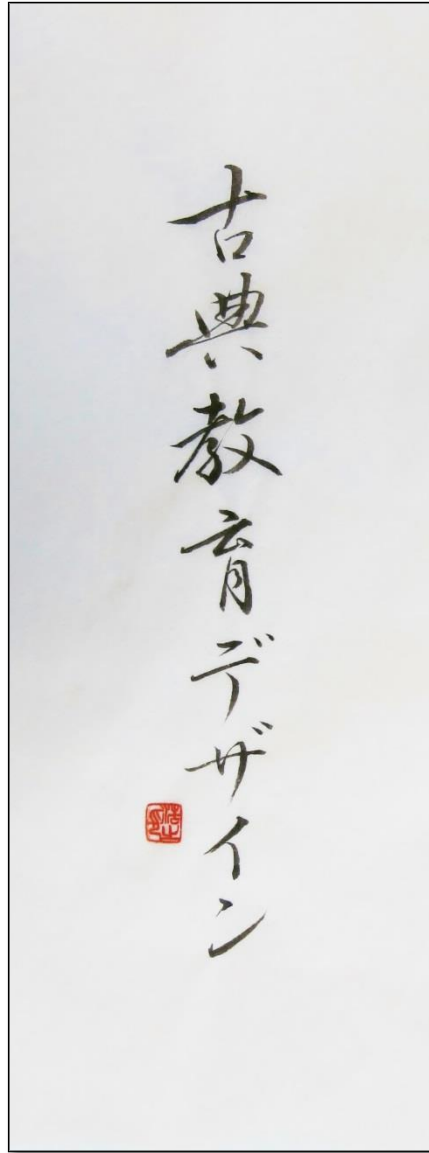 古典教育デザイン